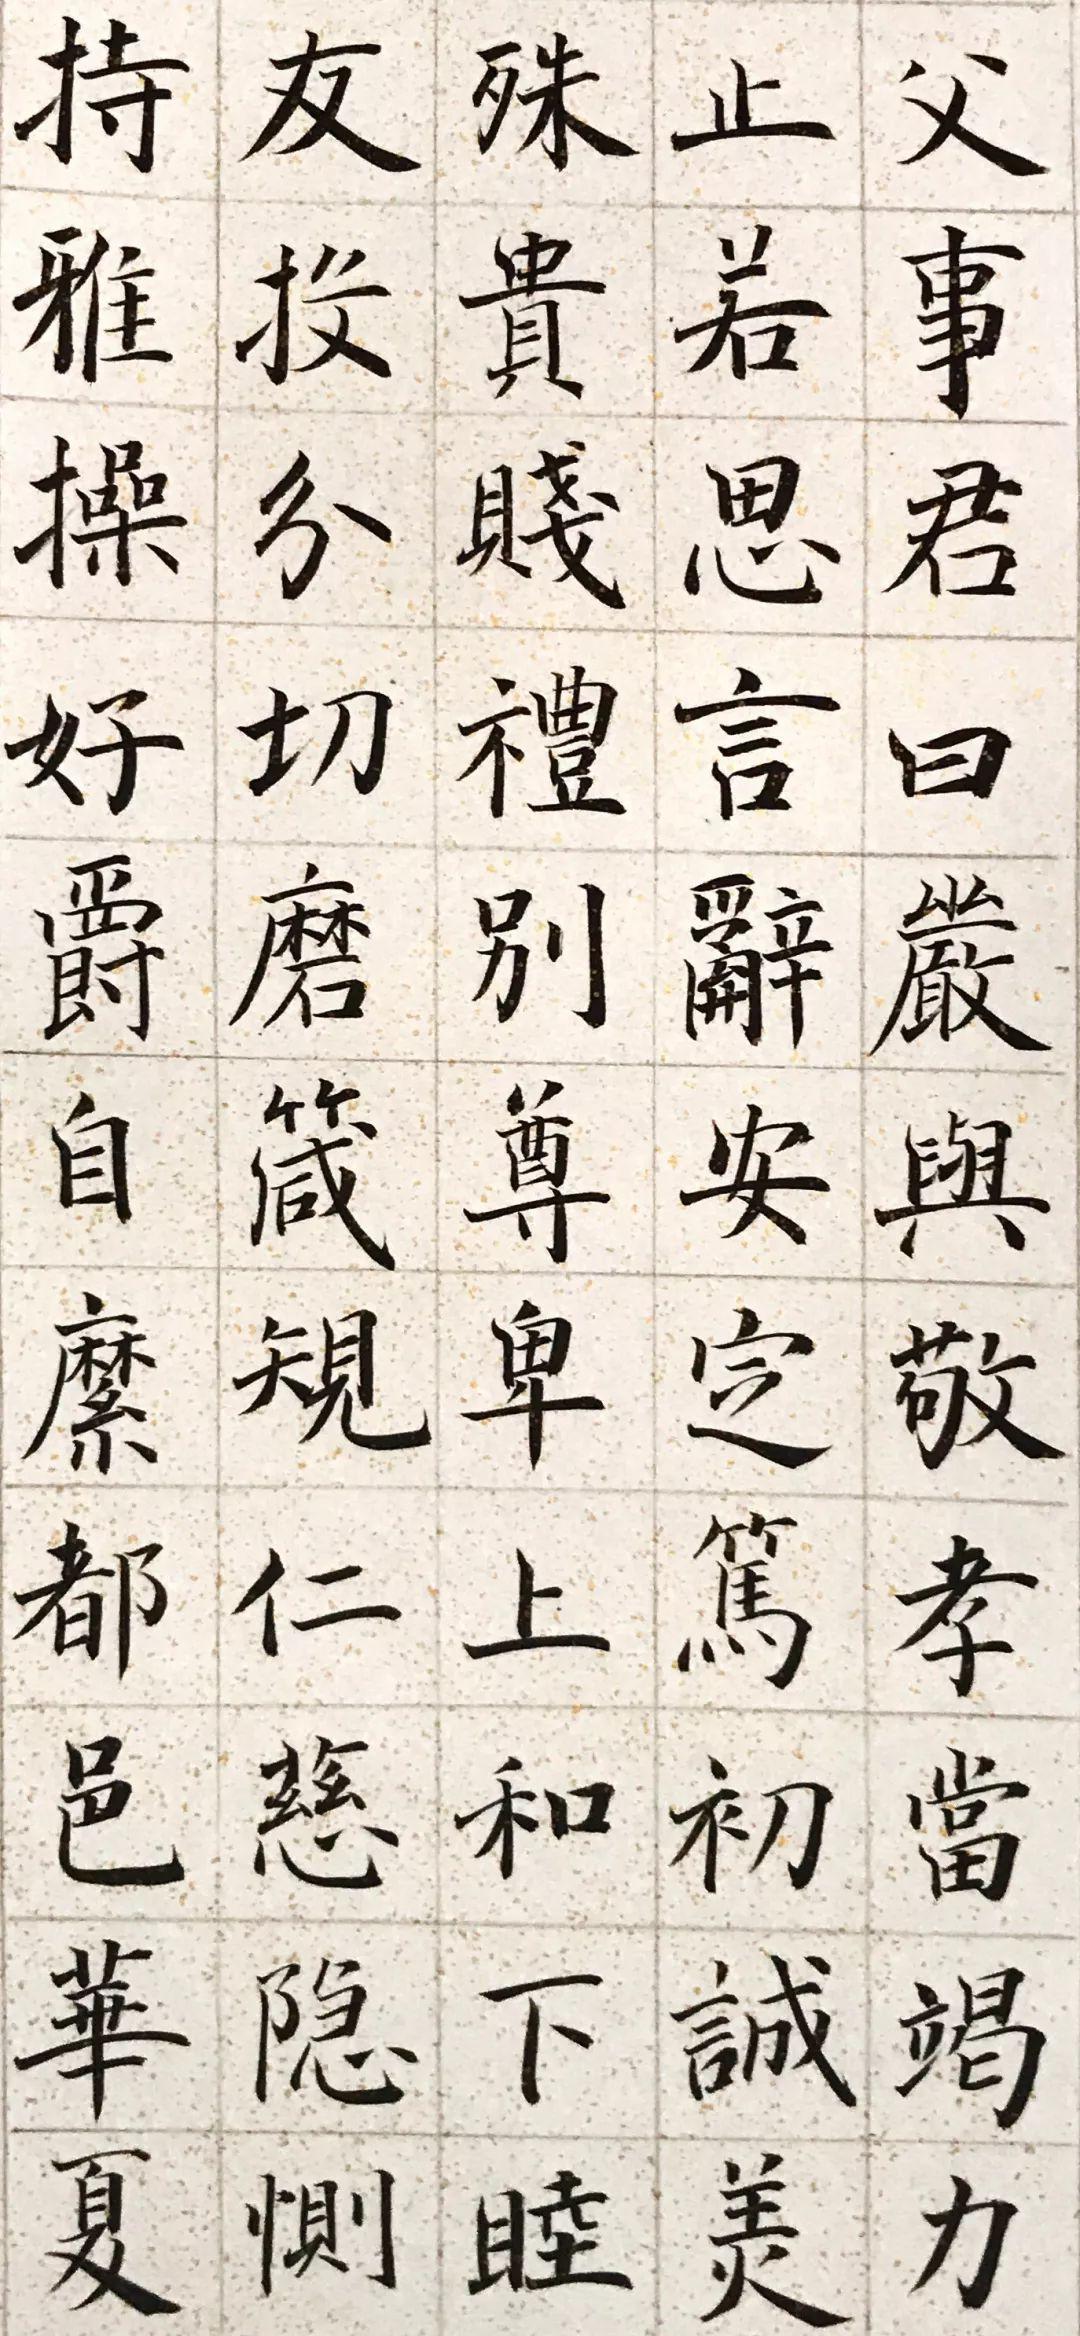 父事君曰嚴與敬孝當竭力
止若思言辭安定篤初誠美
殊貴賤禮別尊卑上和下睦
友投分切磨箴規仁慈隐惻
持雅操好爵自縻都邑華夏